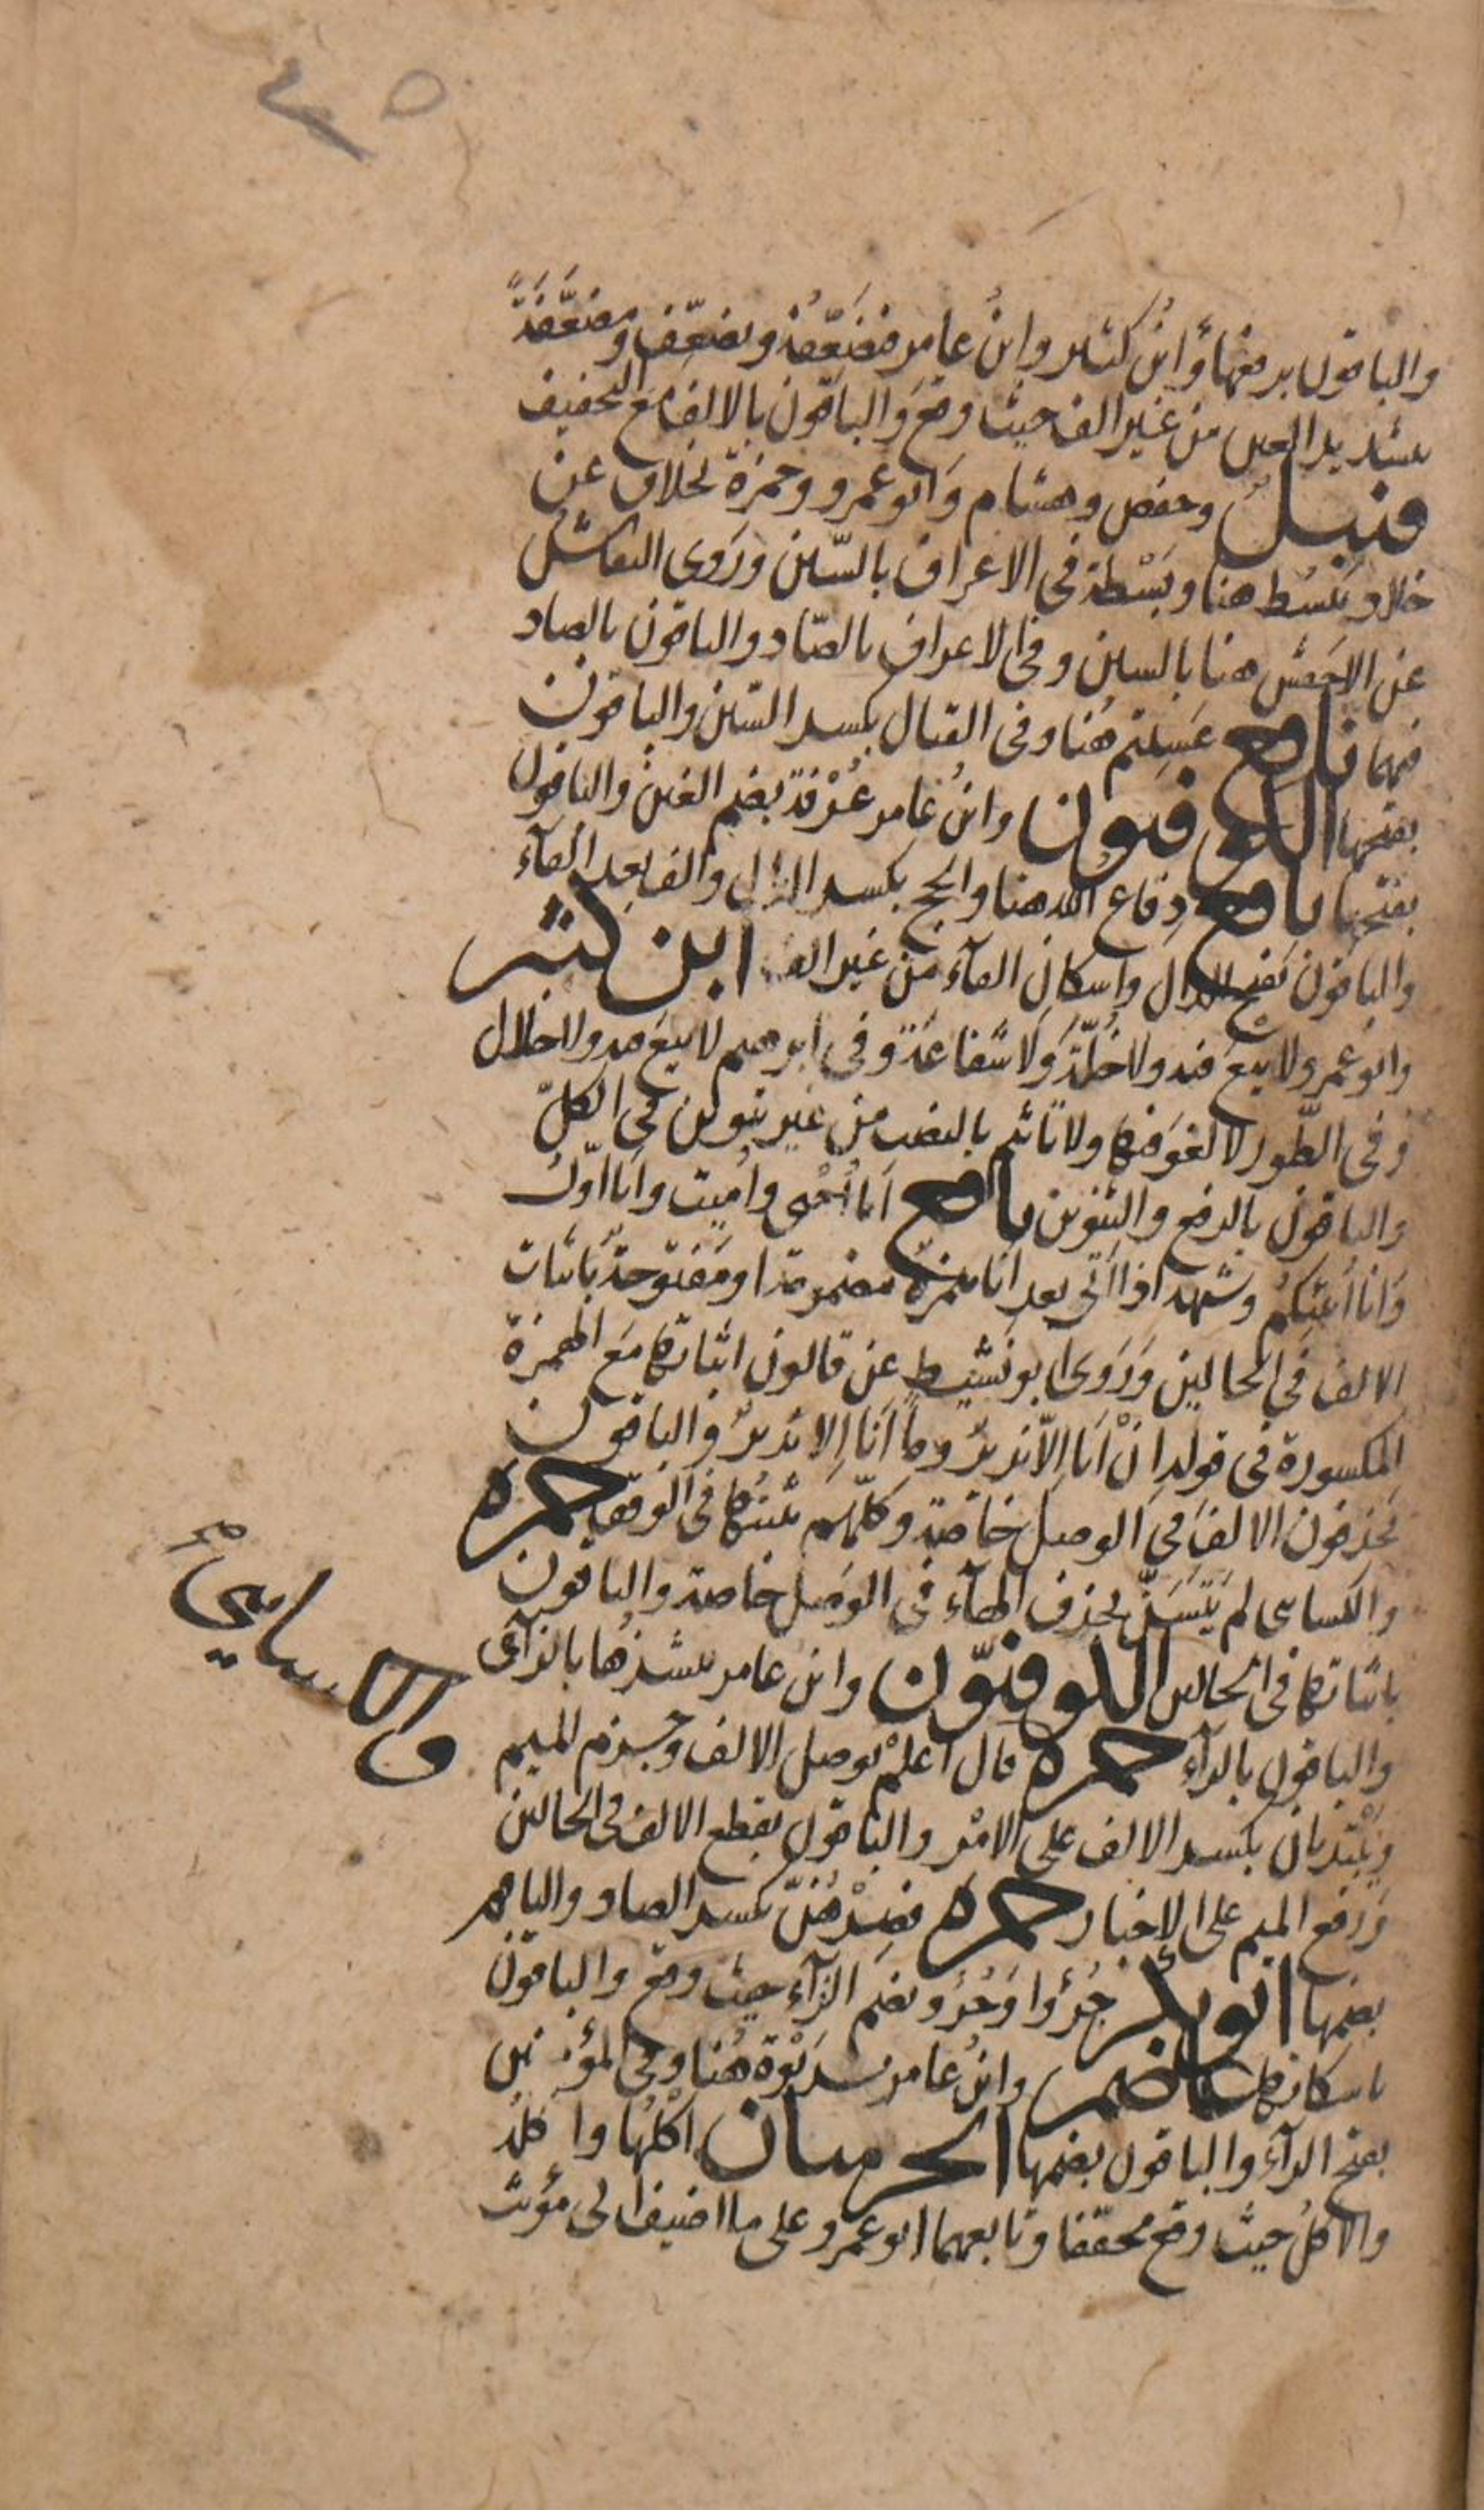 ٤٥
والباقون برفعها وابن كثير وابن عامر فيضعّفه ويضعّف ومضعّفة
بتشديد العين من غير الف حيث وقع والباقون بالالف مع التخفيف
قنبل وحفص وهشام وابو عمرو وحمزة بخلاف عن
خلاد يبسط هنا وبسْطة في الاعراف بالسّين وروى النقاش
عن الاخفش هنا بالسين وفي الاعراف بالصّاد والباقون بالصاد
فيهما نافع عسِيتم هُنا وفي القتال بكسر السّين والباقون
بفتحها الكوفيون وابنُ عامر غُرْفة بضم الغين والباقون
بفتحها نافع دِفاع الله هنا والحج بكسر الدال والف بعد الفآء
والباقون بفتح الدال واسكان الفآء من غير الف ابن كثير
وابو عمرو لا بيعَ فيه ولا خُلّةَ ولا شفاعةَ وفي ابرهيم لا بيعَ فيه ولا خلال
وفي الطّور لا لغوَ فيها ولا تاثيم بالنصب من غير تنوين في الكلّ
والباقون بالرفع والتنوين نافع انا اُحْيي واُميت وانا اوّل
وانا اُنبئكم وشبهه اذا اتى بعد انا همزة مضمومة او مفتوحة باثبات
الالف في الحالين وروى ابو نشيط عن قالون اثباتها مع الهمزة
المكسورة في قوله انْ انا اِلّا نذيرٌ وما انا اِلا نذيرٌ والباقون
يحذفون الالف في الوصل خاصّة وكلّهم يثبتها في الوقف حمزه
والكسائي لم يتسنّ بحذف الهآء في الوصل خاصة والباقون
باثباتها في الحالين الكوفيّون وابن عامر ننشزُها بالزآى
والباقون بالرآء حمزه قال اعلمْ بوصل الالف وجزم الميم
والكسايي صح
ويبتديان بكسر الالف على الامْر والباقون بقطع الالف في الحالين
ورفع الميم على الاخبار حمزه فصِرْهُنّ بكسر الصاد والباقون
بضمها ابو بكر جُزُؤا وجُزُؤ بضم الزآء حيث وقع والباقون
باسكانها عاصم وابنُ عامر برَبْوة هُنا وفي المؤمنين
بفتح الرآء والباقون بضمها الحرميان اكْلُها واكلُهُ
والاكلُ حيث وقع مخففا وتابعهما ابو عمرو على ما اضيف الى مؤنث